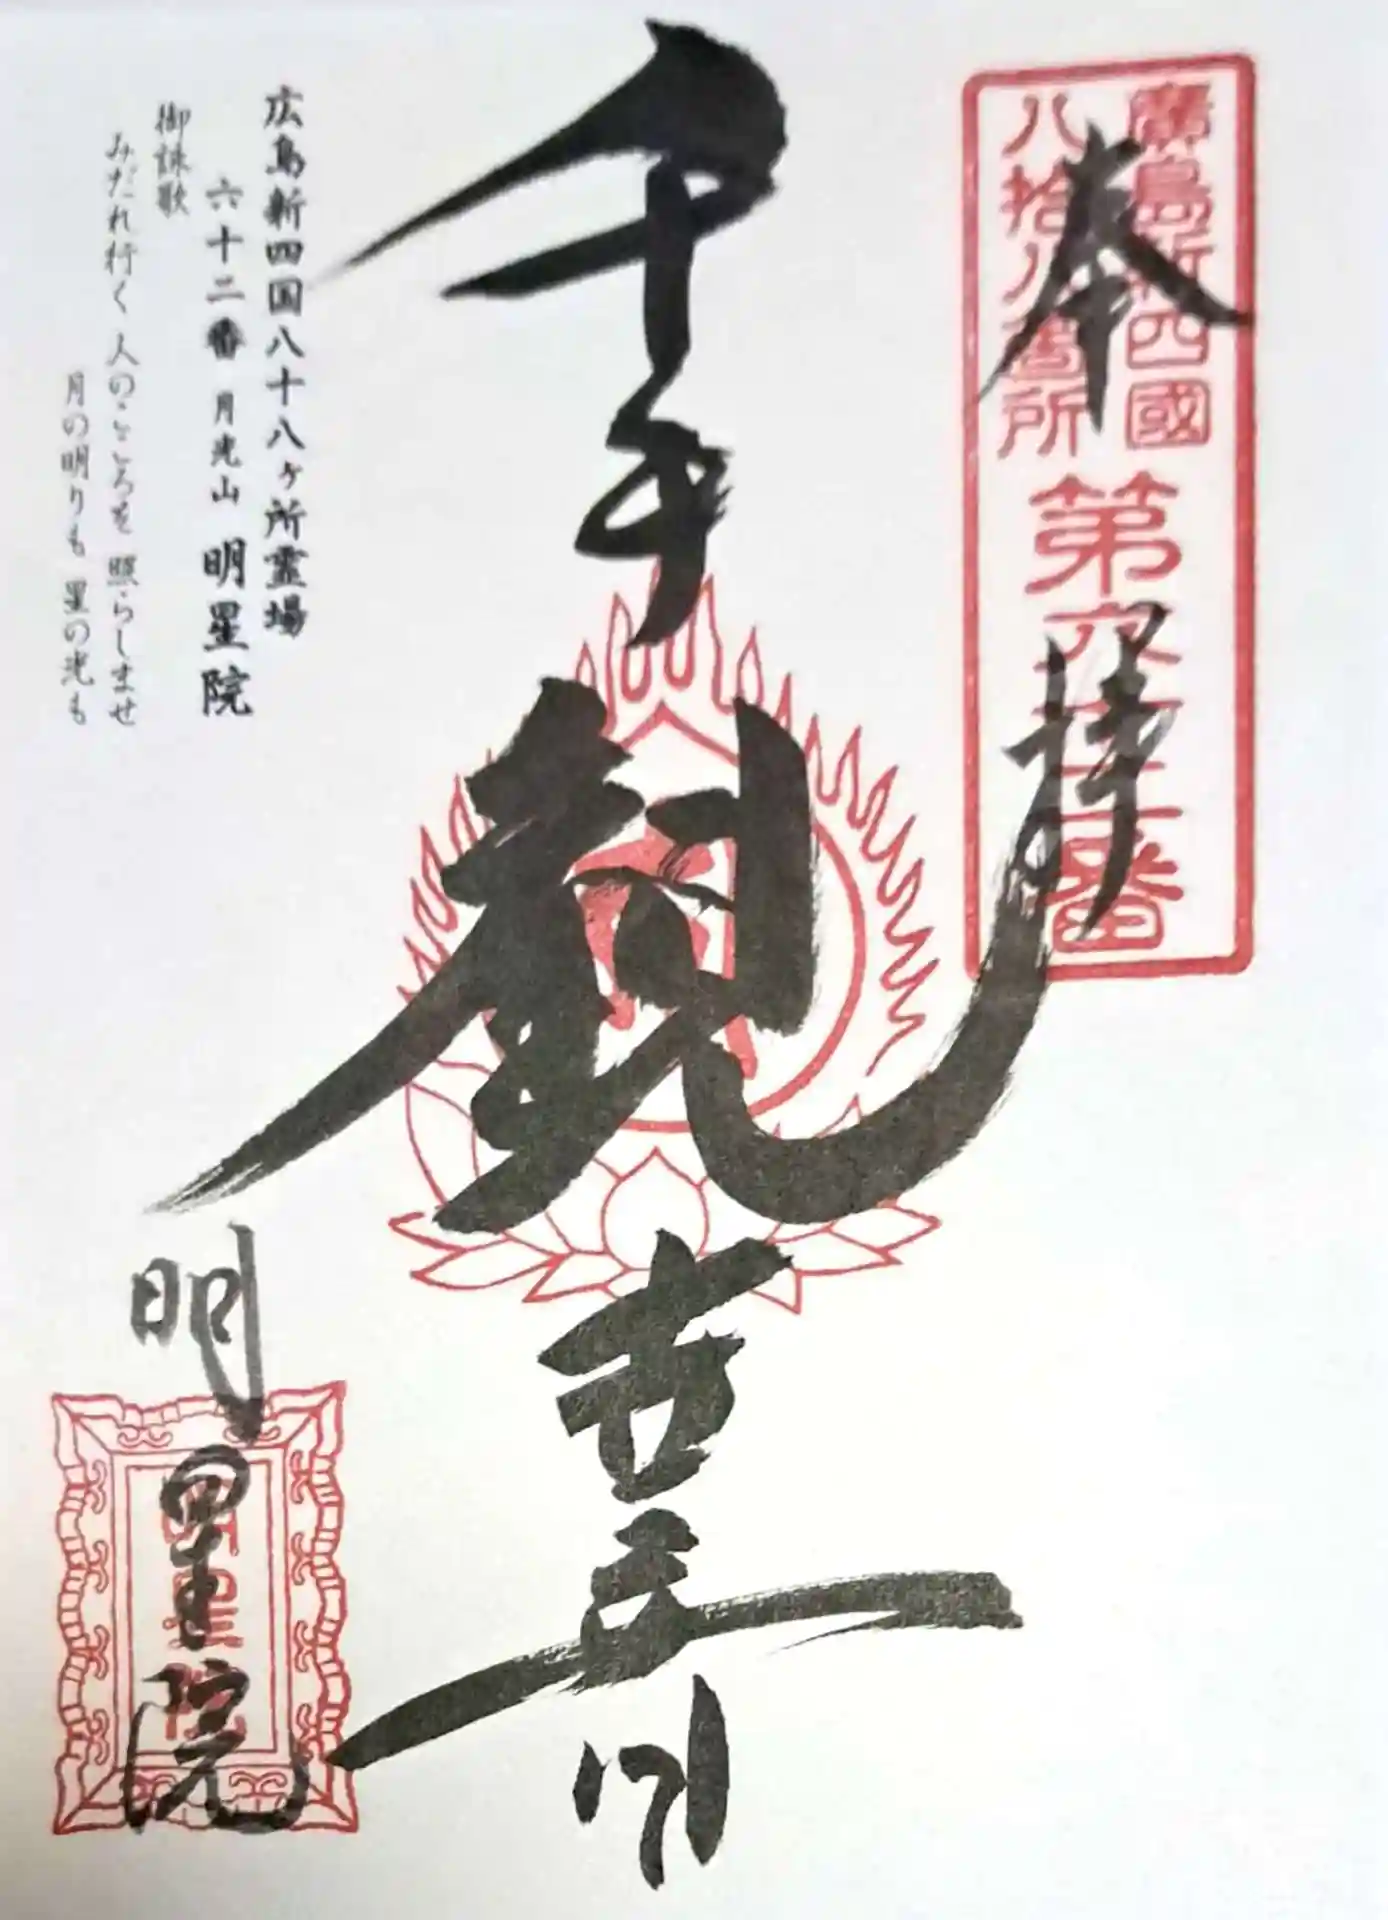 奉拝
廣島新四國
八拾八箇所
第六十二番
千手観世音
明星院
広島新四国八十八ヶ所霊場
六十二番 月光山 明星院
御詠歌
みだれ行く 人のこころを 照らしませ
月の明りも 星の光も